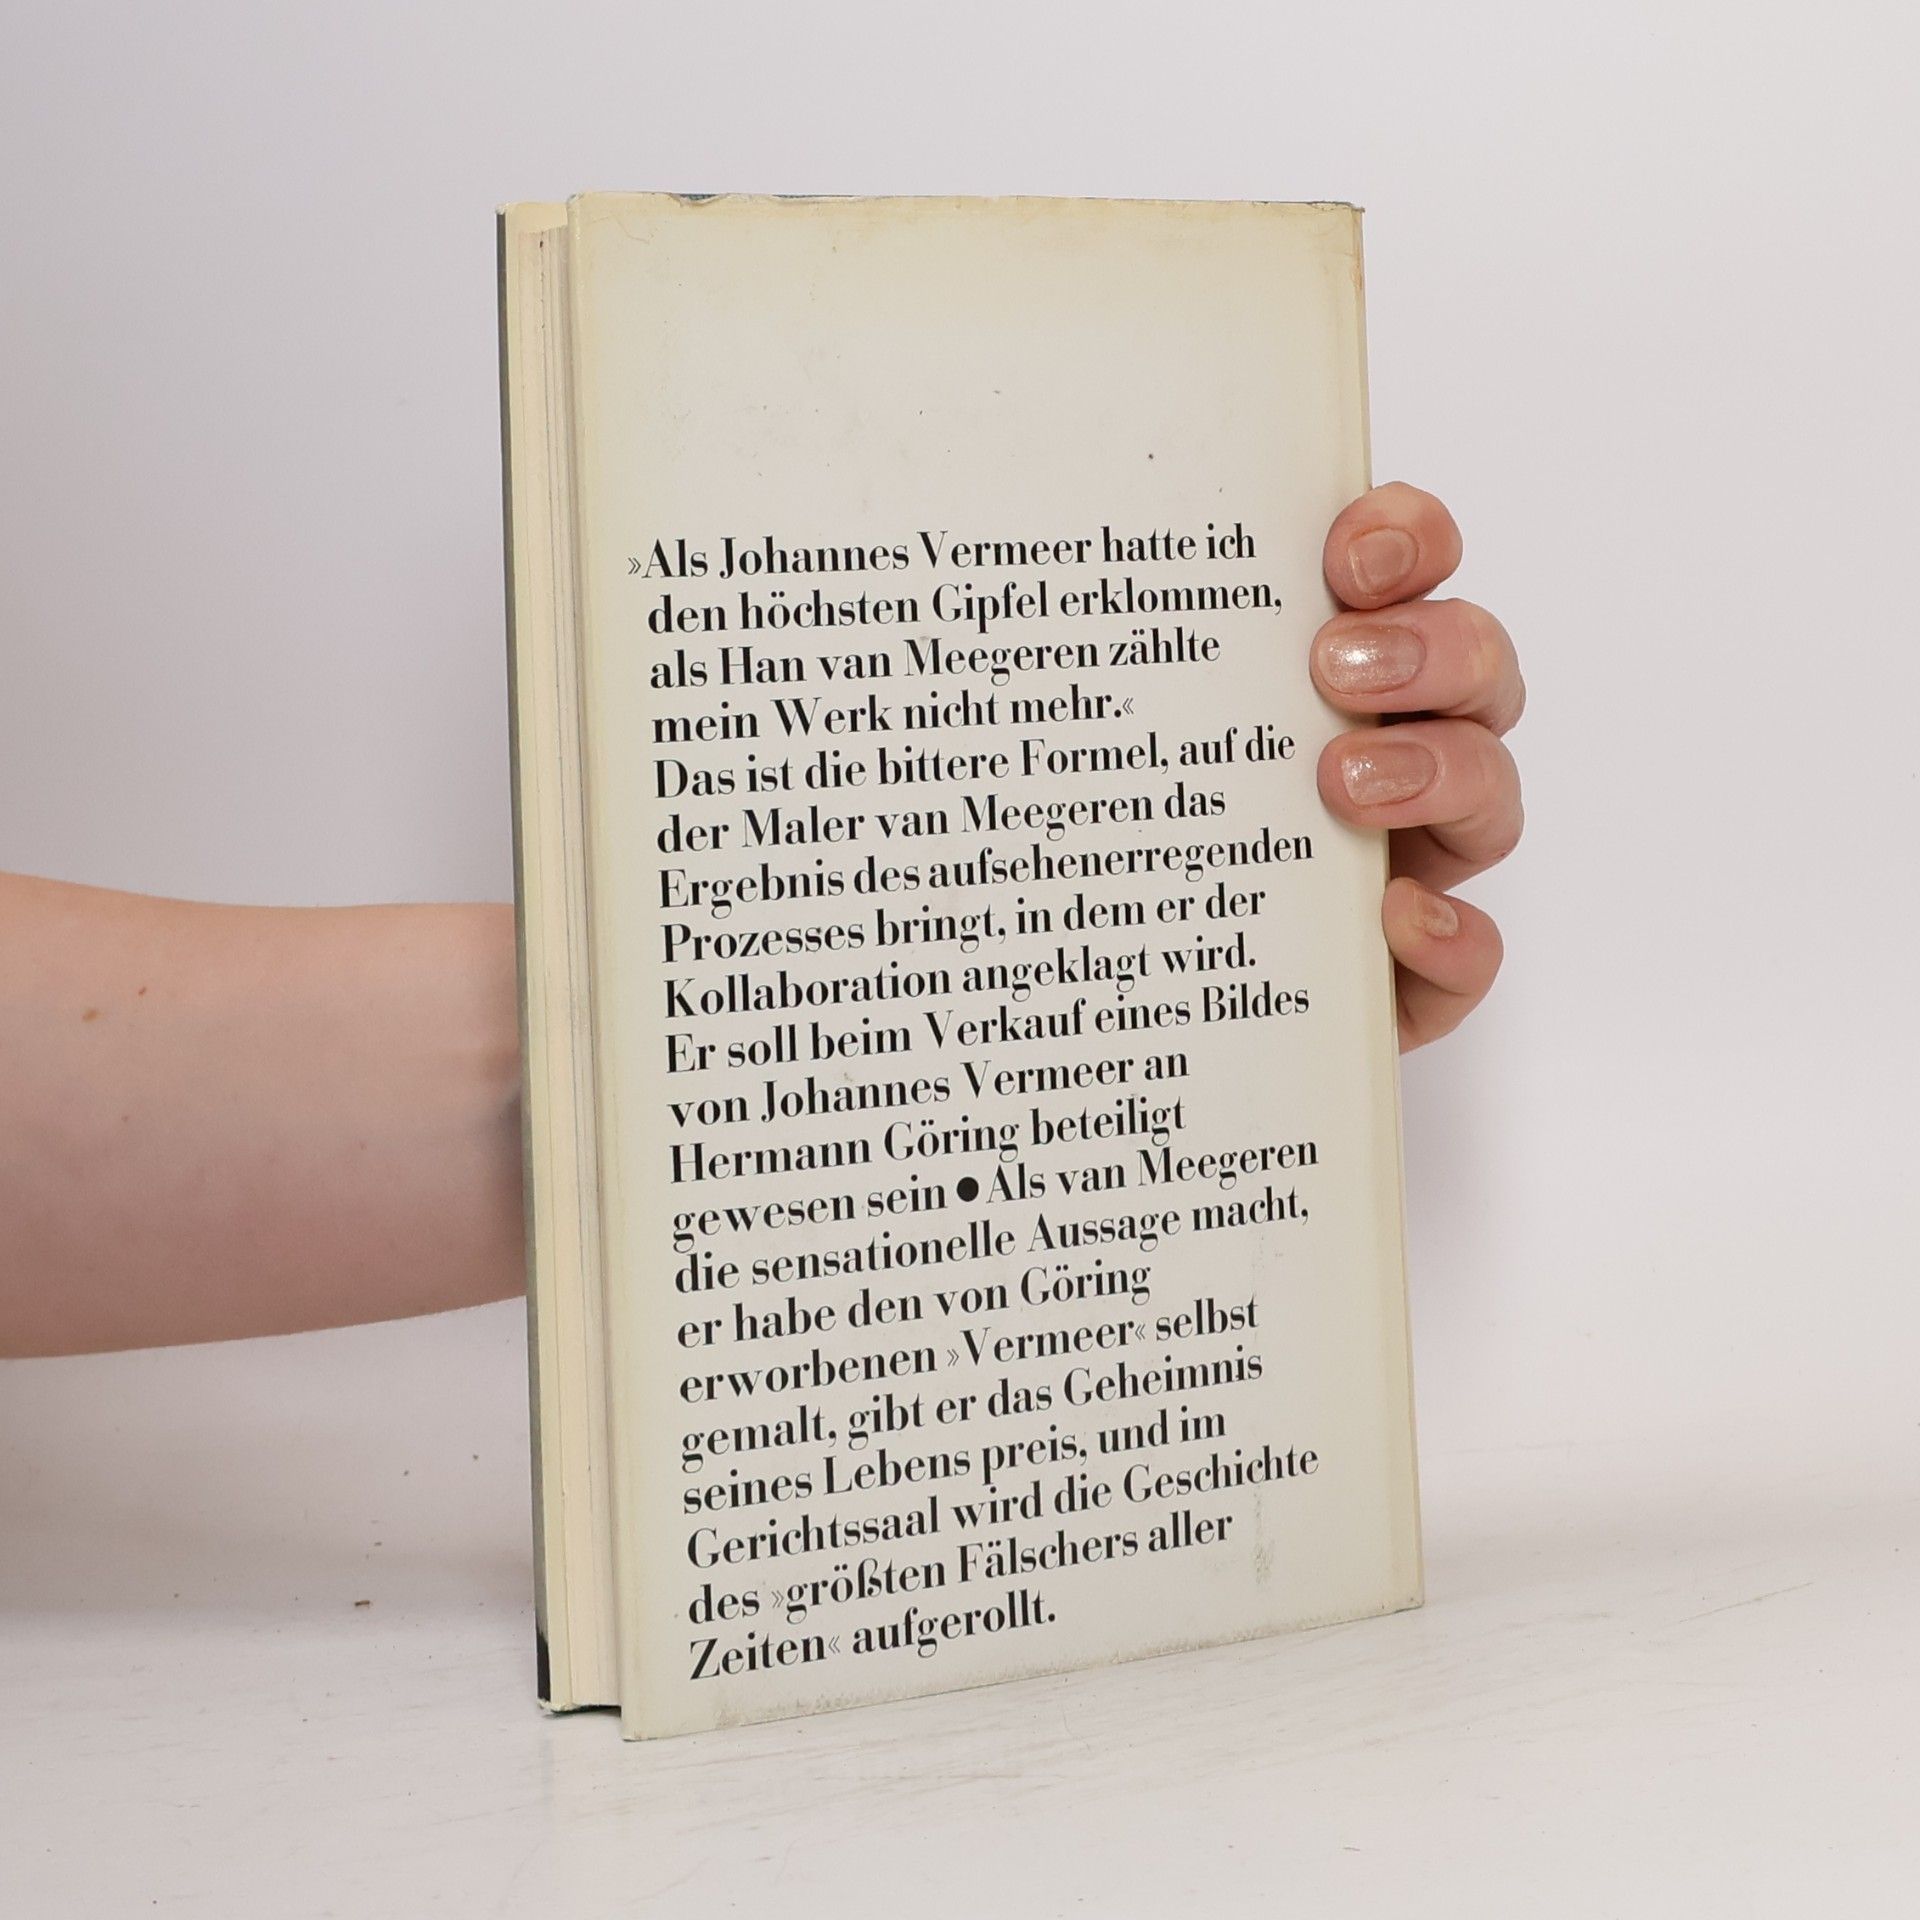 »Als Johannes Vermeer hatte ich
den höchsten Gipfel erklommen,
als Han van Meegeren zählte
mein Werk nicht mehr.«
Das ist die bittere Formel, auf die
der Maler van Meegeren das
Ergebnis des aufsehenerregenden
Prozesses bringt, in dem er der
Kollaboration angeklagt wird.
Er soll beim Verkauf eines Bildes
von Johannes Vermeer an
Hermann Göring beteiligt
gewesen sein ● Als van Meegeren
die sensationelle Aussage macht,
er habe den von Göring
erworbenen »Vermeer« selbst
gemalt, gibt er das Geheimnis
seines Lebens preis, und im
Gerichtssaal wird die Geschichte
des »größten Fälschers aller
Zeiten« aufgerollt.